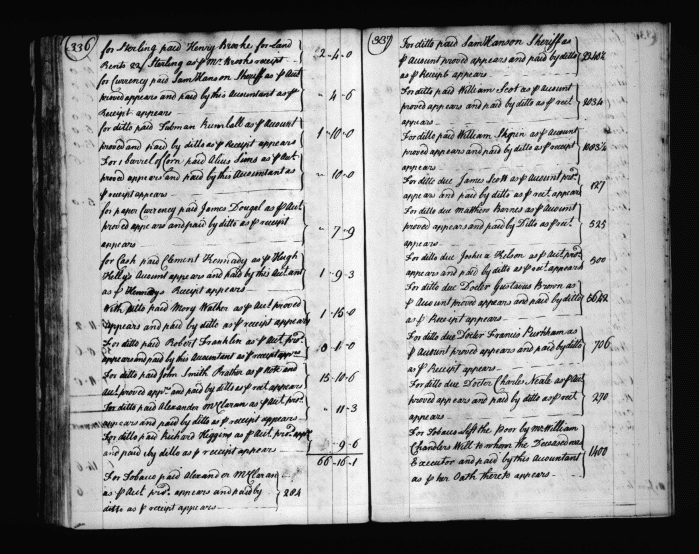 336
for Sterling paid Henry Brooke for Land
Rents 22/ Sterling as ⅌ Mr. Brooks receipt 2-4-0
for Currency paid Sam Hanson Sheriff as ⅌ Acct
proved appears and paid by this Accountant as ⅌ " 4-6
Receipt appears
for ditto paid Tubman as ⅌ Account
proved and paid by ditto as ⅌ Receipt appears 1-10-0
For 1 barrel of Corn paid Sims as ⅌ Acct.
proved appears and paid by this Accountant as " 10-0
⅌ receipt appears
for paper Currency paid James Dougel as ⅌ Acct
proved appears and paid by ditto as ⅌ receipt " 7-9
appears
for Cash paid Clement Kennady as ⅌ Hugh
Kelly's Account appears and paid by this Act.ant 1-9-3
as ⅌ Kennadys Receipt appears
With Ditto paid Mery Wather as ⅌ Act proved
appears and paid by ditto as ⅌ receipt appears 1-16-0
For ditto paid Robert Franklin as ⅌ Act. prov.
appears and paid by this Accountant as ⅌ receipt apprs
For ditto paid John Smith Prather as ⅌ Note and
Act. proved appr. and paid by ditto as ⅌ rect. appears 15-10-6
For ditto paid Alexander McClaran as ⅌ Act. prov.
appears and paid by ditto as ⅌ receipt appears " 11-3
For ditto paid Richard Higgins as ⅌ Act. prov. appr
and paid by ditto as ⅌ receipt appears " 9-6
66-16-1
For Tobacco paid Alexander McClaran
as ⅌ Act prov. appears and paid by 204
ditto as ⅌ receipt appears
337
For ditto paid Sam Hanson Sheriff as
⅌ Account proved appears and paid by ditto
as ⅌ Receipt appears
For ditto paid William Scot as ⅌ Account
proved appears and paid by ditto as ⅌ rect.
appears
For ditto paid William as ⅌ Account
proved appears and paid by ditto as ⅌ receipt
appears
For ditto due James Scott as ⅌ Account prov.
appears and paid by ditto as ⅌ rect. appears 127
For ditto due Matthew Barnes as ⅌ Account
proved appears and paid by Ditto as ⅌ rect. 525
appears
For ditto due Joshua Nelson as ⅌ Act. prov.
appears and paid by ditto as ⅌ rect. appears 500
For ditto due Doctor Gustavus Brown as
⅌ Account proved appears and paid by ditto
as ⅌ Receipt appears
For ditto due Docter Francis Parkham as
⅌ Account proved appears and paid by ditto 706
as ⅌ Receipt appears
For ditto due Doctor Charles Neale as ⅌ Act
proved appears and paid by ditto as ⅌ rect. 290
appears
For Tobacco left the Poor by Mr. William
Chandlers Will to whom the Deceased was
Executor and paid by this Accountant 1400
as ⅌ her Oath thereto appears